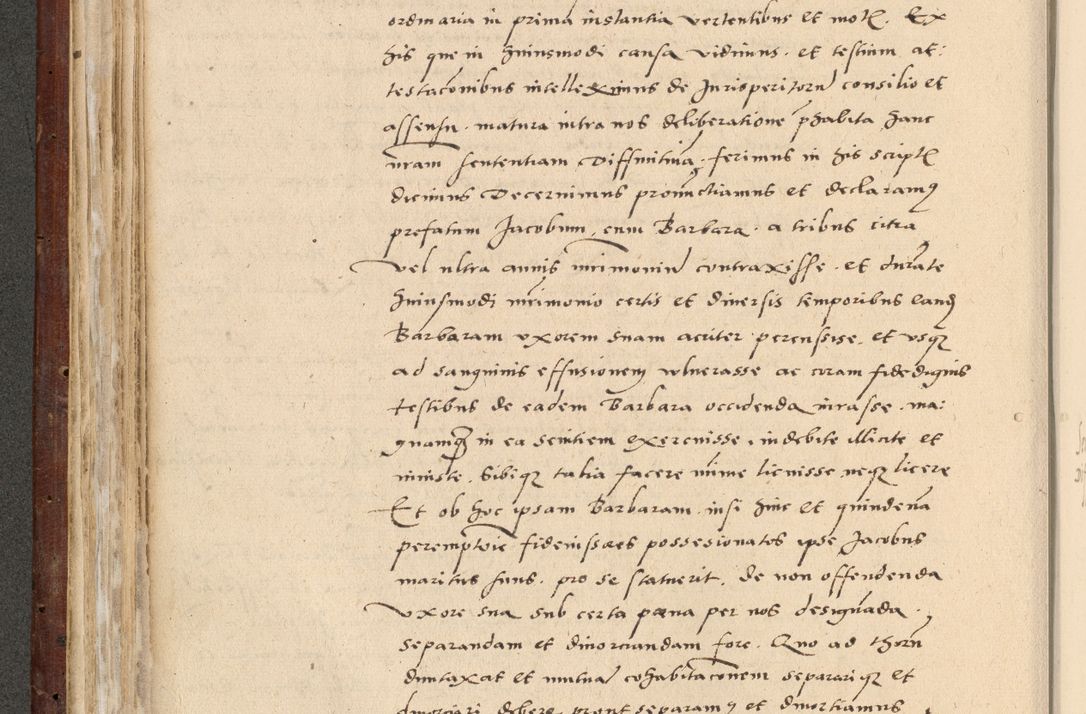 ordinaria in prima instantia vertentibus et motꝭ. Ex
his que in huiusmodi causa vidimus. et testium at:
testacōnibus intelleximus de Jurisperitorū consilio et
assensu. matura intra nos deliberatione p̄habita hanc
nr̄am sententiam Diffinitiuā. ferimus in his scriptꝭ
dicimus Decernimus pronūctiamus et declaramꝰ
prefatum Jacobum, cum Barbara. a tribus citra
vel ultra annis mr̄imoniū contraxisse. et durāte
huiusmodi mr̄imonio certis et diuersis temporibus eandꝫ
Barbaram vxorem suam acriter percussisse. et vsqꝫ
ad sanguinis effusionem vulnerasse ac coram fidedignis
testibus de eadem Barbara occidenda iurasse. ma:
gnamqꝫ in ea seuitiem exercuisse, indebite illicite et
iniuste. Sibiqꝫ talia facere mīme licuisse neqꝫ licere
Et ob hoc ipsam Barbaram. nisi hinc et quindenā
peremptorie fideiussores possesionatos ipse Jacobus
maritus suus. pro se statuerit. de non offendenda
vxore sua sub certa pœna per nos designāda.
separandam et diuorciandam fore. Quo ad thorū
duntaxat et mutuā cohabitacōnem separariqꝫ et
diuorciari debere prout separamꝰ et diuortiamus